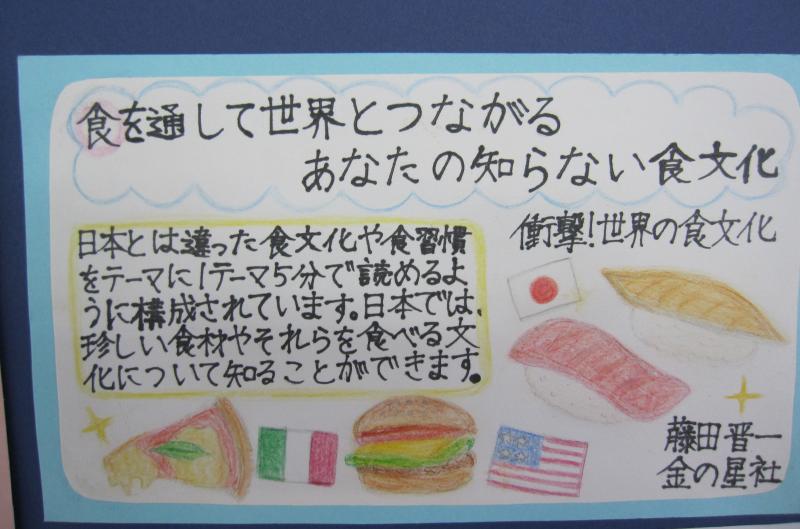 食を通して世界とつながる
あなたの知らない食文化
衝撃!世界の食文化
日本とは違った食文化や食習慣
をテーマに1テーマ5分で読めるよ
うに構成されています。日本では、
珍しい食材やそれらを食べる文
化について知ることができます。
藤田晋一
金の星社